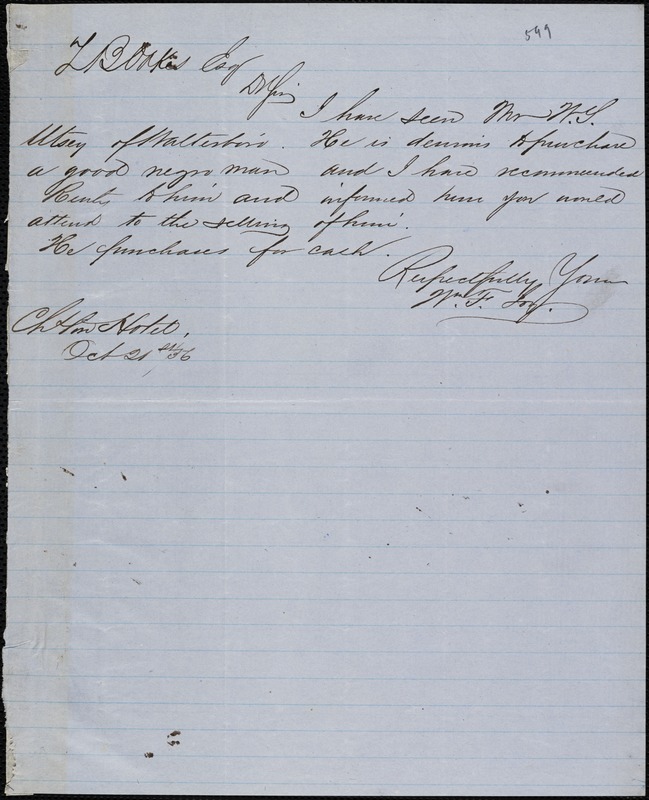 599
Z B Oakes Esq
Dr Sir
I have seen Mr W. S.
Utsey of Walterboro. He is desirous to purchase
a good negro man and I have recommended
to him and informed him you would
attend to the selling of him.
He purchases for cash.
Respectfully Yours
Wm. F.
Chston Hotel,
Oct 21st/56